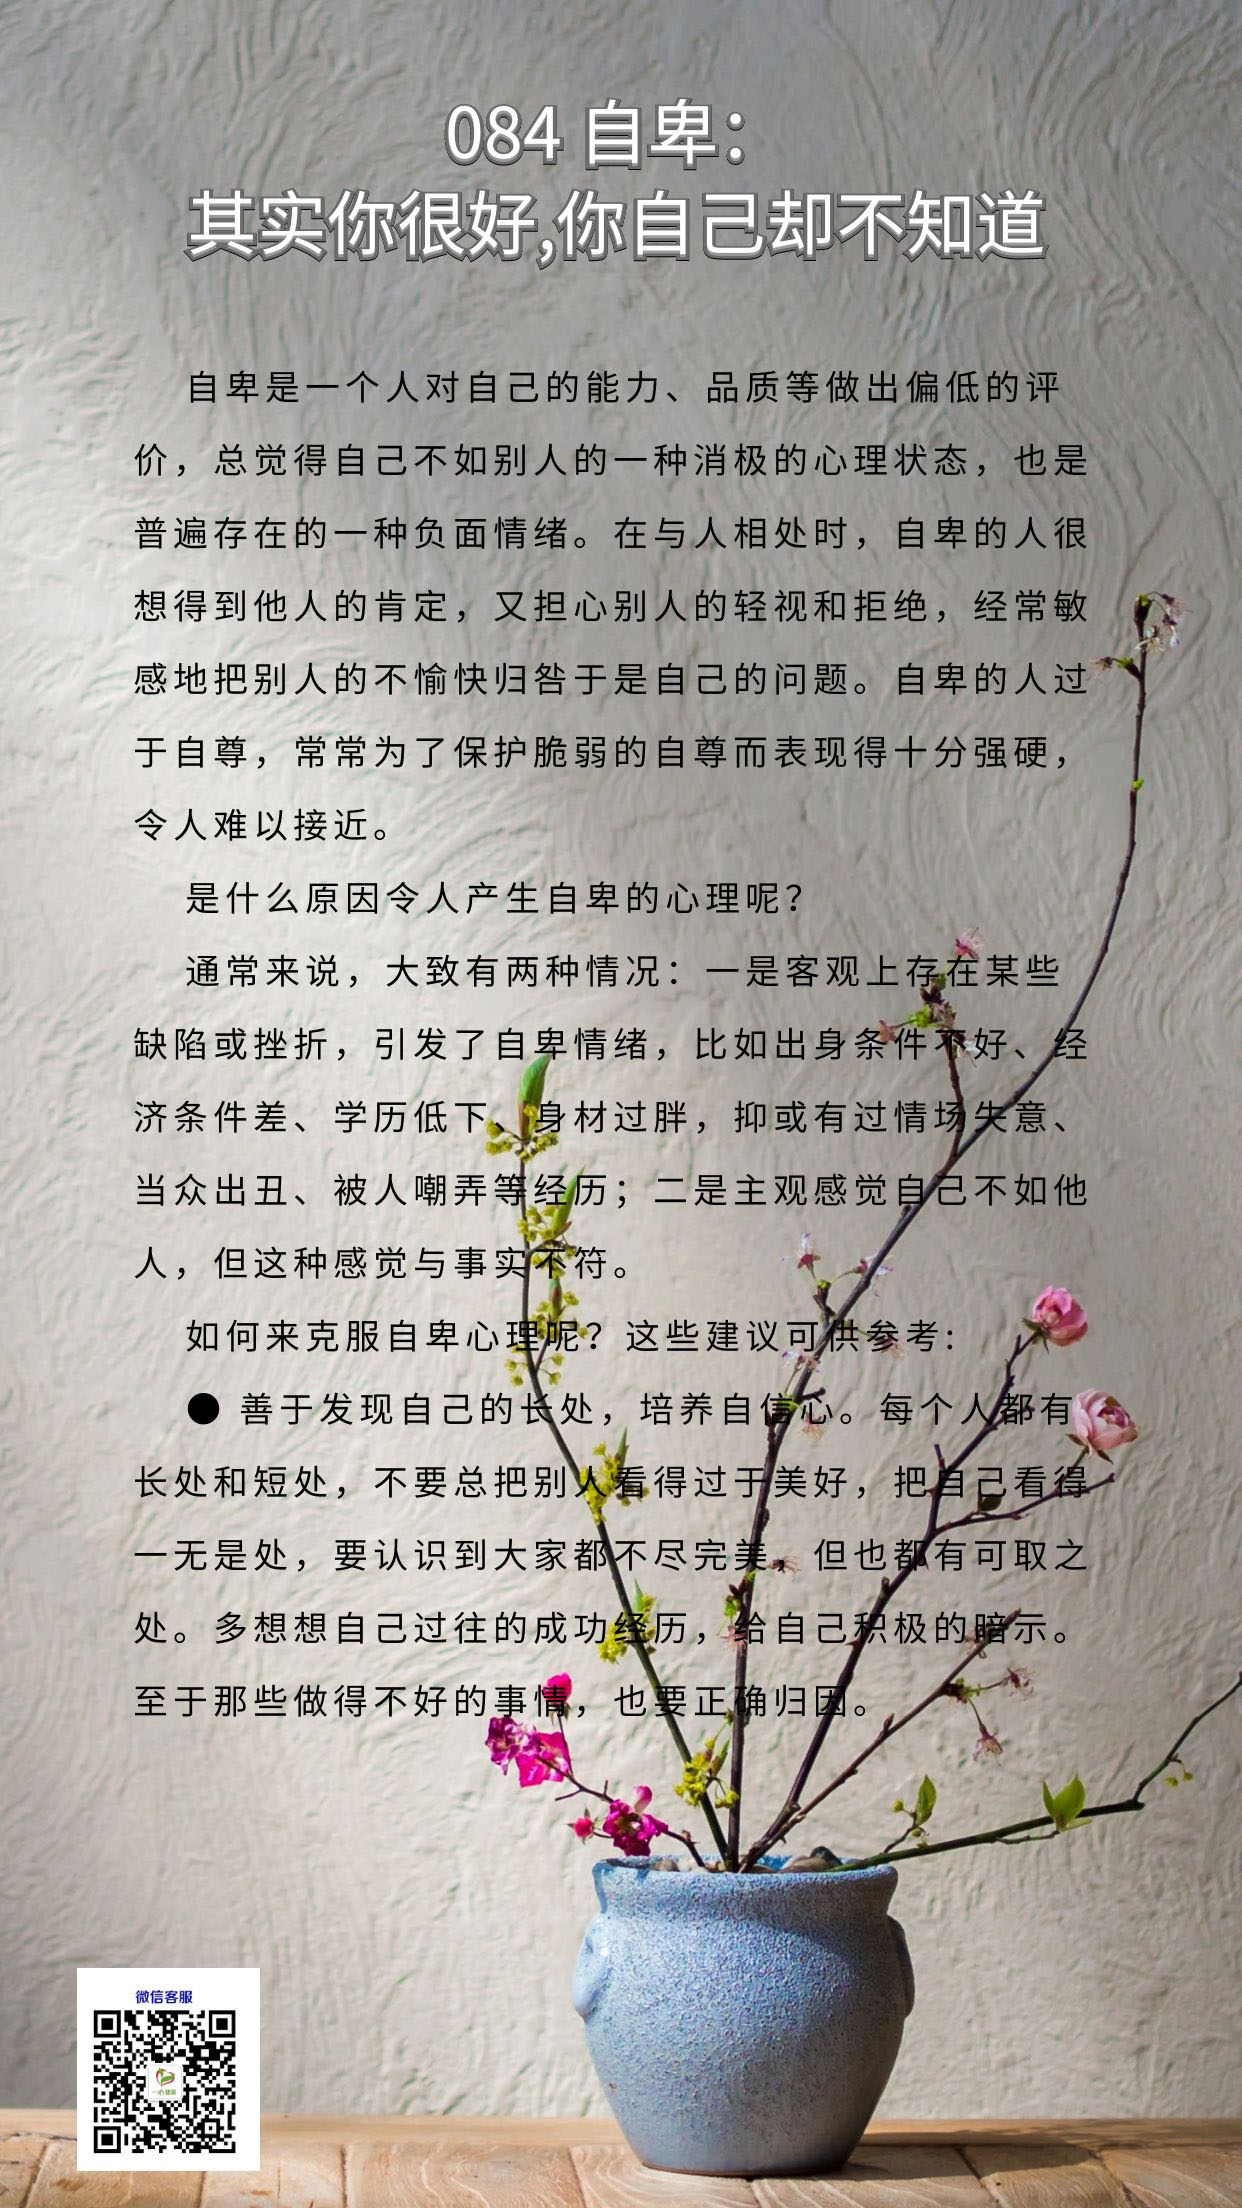 084 自卑：
其实你很好,你自己却不知道
自卑是一个人对自己的能力、品质等做出偏低的评
价，总觉得自己不如别人的一种消极的心理状态，也是
普遍存在的一种负面情绪。在与人相处时，自卑的人很
想得到他人的肯定，又担心别人的轻视和拒绝，经常敏
感地把别人的不愉快归咎于是自己的问题。自卑的人过
于自尊，常常为了保护脆弱的自尊而表现得十分强硬，
令人难以接近。
是什么原因令人产生自卑的心理呢？
通常来说，大致有两种情况：一是客观上存在某些
缺陷或挫折，引发了自卑情绪，比如出身条件不好、经
济条件差、学历低下、身材过胖，抑或有过情场失意、
当众出丑、被人嘲弄等经历；二是主观感觉自己不如他
人，但这种感觉与事实不符。
如何来克服自卑心理呢？这些建议可供参考：
● 善于发现自己的长处，培养自信心。每个人都有
长处和短处，不要总把别人看得过于美好，把自己看得
一无是处，要认识到大家都不尽完美，但也都有可取之
处。多想想自己过往的成功经历，给自己积极的暗示。
至于那些做得不好的事情，也要正确归因。
微信客服